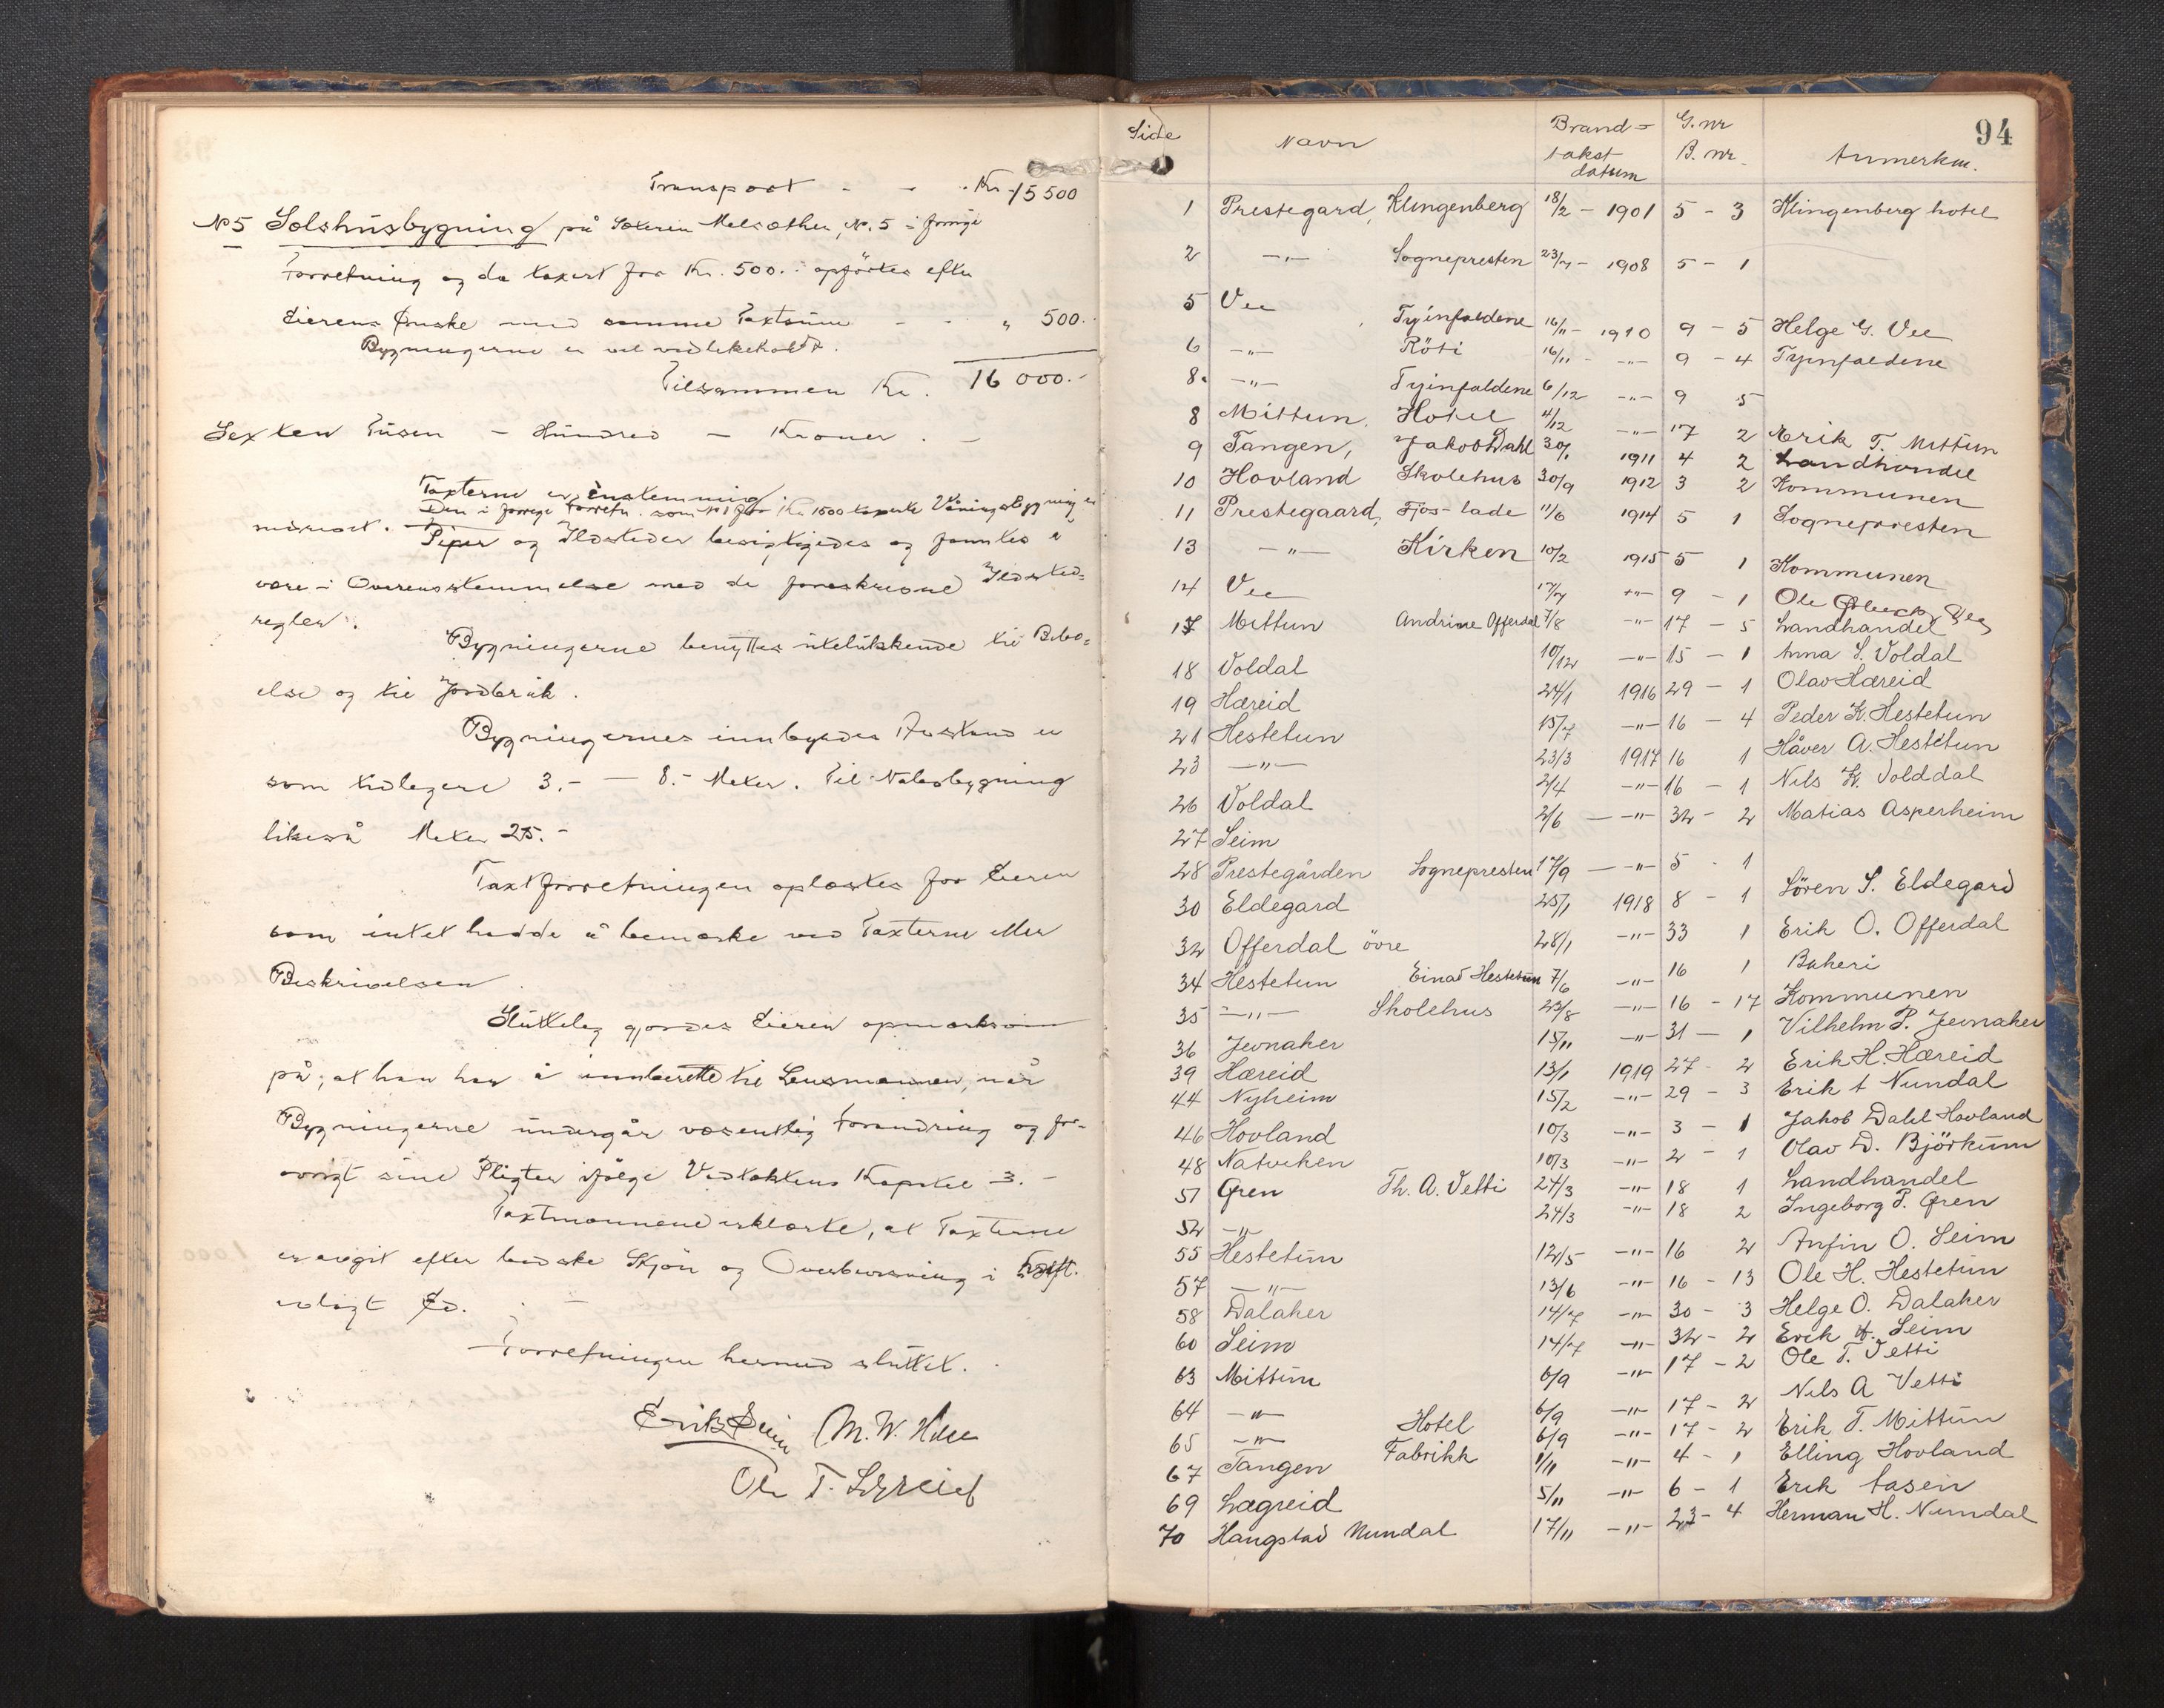 Transport - - . Kr. 15 500
No 5 Selshusbygning på Sæteren Melsæther, No. 5 i forrige
Forretning og da taxert for Kr. 500.- opførtes efter
Eierens Ønske med samme Taxtsum - - " 500.-
Bygningerne er vel vedlikeholdt.
Tilsammen Kr. 16 000.-
Sexten Tusen - Hundred - Kroner. -
Taxterne er Enstemmig.
Den i forrige Forretn. som No 1 for Kr. 1500 taxerte Våningsbygning er
nedrevet. Piper og Ildsteder besigtigedes og fantes å
være i Overensstemmelse med de foreskrevne Ildsted=
regler.
Bygningerne benyttes utelukkende til Bebo=
else og til Jordbruk.
Bygningernes innbyrdes Avstand er
som tidlegere 3.- — 8.- Meter. Til Nabosbygning
likeså Meter 25.-
Taxtforretningen oplæstes for Eieren
som intet hadde å bemærke ved Taxterne eller
Beskrivelsen.
Sluttelig gjordes Eieren opmerksom
på, at han har å innberette til Lensmannen, når
Bygningerne undergår væsentlig Forandring og for-
øvrigt sine Pligter ifølge Vedtektens Kapitel 3. -
Taxtmennene erklærte, at Taxterne
er avgit efter bedste Skjøn og Overbevisning i Kraft.
avlagt Ed. -
Forretningen hermed sluttet.
Erik Seim M. W.
Ole T. Lægreid
94
Side Navn Brand= takst datum G. nr B. nr. Anmerkn.
1 Prestegard, Klingenberg 18/2 - 1901 5 - 3 Klingenberg hotel
2 -"- Sognepresten 23/7 - 1908 5 - 1
5 Vee , Tyinfaldene 16/11 - 1910 9 - 5 Helge G. Vee
6 -"- Röti 16/11 - -"- 9 - 4 Tyinfaldene
8. -"- Tyinfaldene 6/12 -"- 9 5
8 Mittun, Hotel 4/12 -"- 17 2 Erik T. Mittun
9 Tangen, Jakob Dahl 30/1 1911 4 2 Landhandel
10 Hovland Skolehus 30/9 1912 3 2 Kommunen
11 Prestegaard, Fjos-lade 11/6 1914 5 1 Sognepresten
13 -"- Kirken 10/2 1915 5 1 Kommunen
14 Vee 17/7 -"- 9 - 1 Ole Vee
17 Mittun Andrine Offerdal 7/8 -"- 17 - 5 Landhandel
18 Voldal 10/12 -"- 15 - 1 Anna S. Voldal
19 Hæreid 24/1 1916 29 - 1 Olav Hæreid
21 Hestetun 15/7 -"- 16 - 4 Peder K. Hestetun
23 -"- 23/3 1917 16 1 Håver A. Hestetun
26 Voldal 2/4 -"- 16 - 1 Nils K. Volddal
27 Seim 2/6 - -"- 32 - 2 Matias Asperheim
28 Prestegården Sognepresten 17/9 - -"- 5 - 1
30 Eldegard 25/1 1918 8 - 1 Sören S. Eldegard
32 Offerdal övre 28/1 -"- 33 1 Erik O. Offerdal
34 Hestetun Einar Hestetun 7/6 -"- 16 1 Bakeri
35 -"- Skolehus 23/8 -"- 16 - 17 Kommunen
36 Jevnaker 15/11 -"- 31 - 1 Vilhelm P. Jevnaker
39 Hæreid 13/1 1919 27 - 2 Erik H. Hæreid
44 Nyheim 15/2 -"- 29 - 3 Erik A Nundal
46 Hovland 10/3 -"- 3 - 1 Jakob Dahl Hovland
48 Natviken 10/3 -"- 2 - 1 Olav D. Björkum
51 Øren Th. A. Vetti 24/3 -"- 18 1 Landhandel
52 -"- 24/3 -"- 18 2 Ingeborg P. Øren
55 Hestetun 12/5 -"- 16 2 Anfin O. Seim
57 -"- 13/6 -"- 16 - 13 Ole H. Hestetun
58 Dalaker 14/7 -"- 30 - 3 Helge O. Dalaker
60 Seim 14/7 -"- 32 - 2 Erik H. Seim
63 Mittun 6/9 -"- 17 - 2 Ole T. Vetti
64 -"- 6/9 -"- 17 - 2 Nils A Vetti
65 -"- Hotel 6/9 -"- 17 - 2 Erik T. Mittun
67 Tangen Fabrikk 1/11 -"- 4 - 1 Elling Hovland
69 Lægreid 5/11 -"- 6 - 1 Erik Aasen
70 Haugstad Nundal 17/11 -"- 23 - 4 Herman H. Nundal